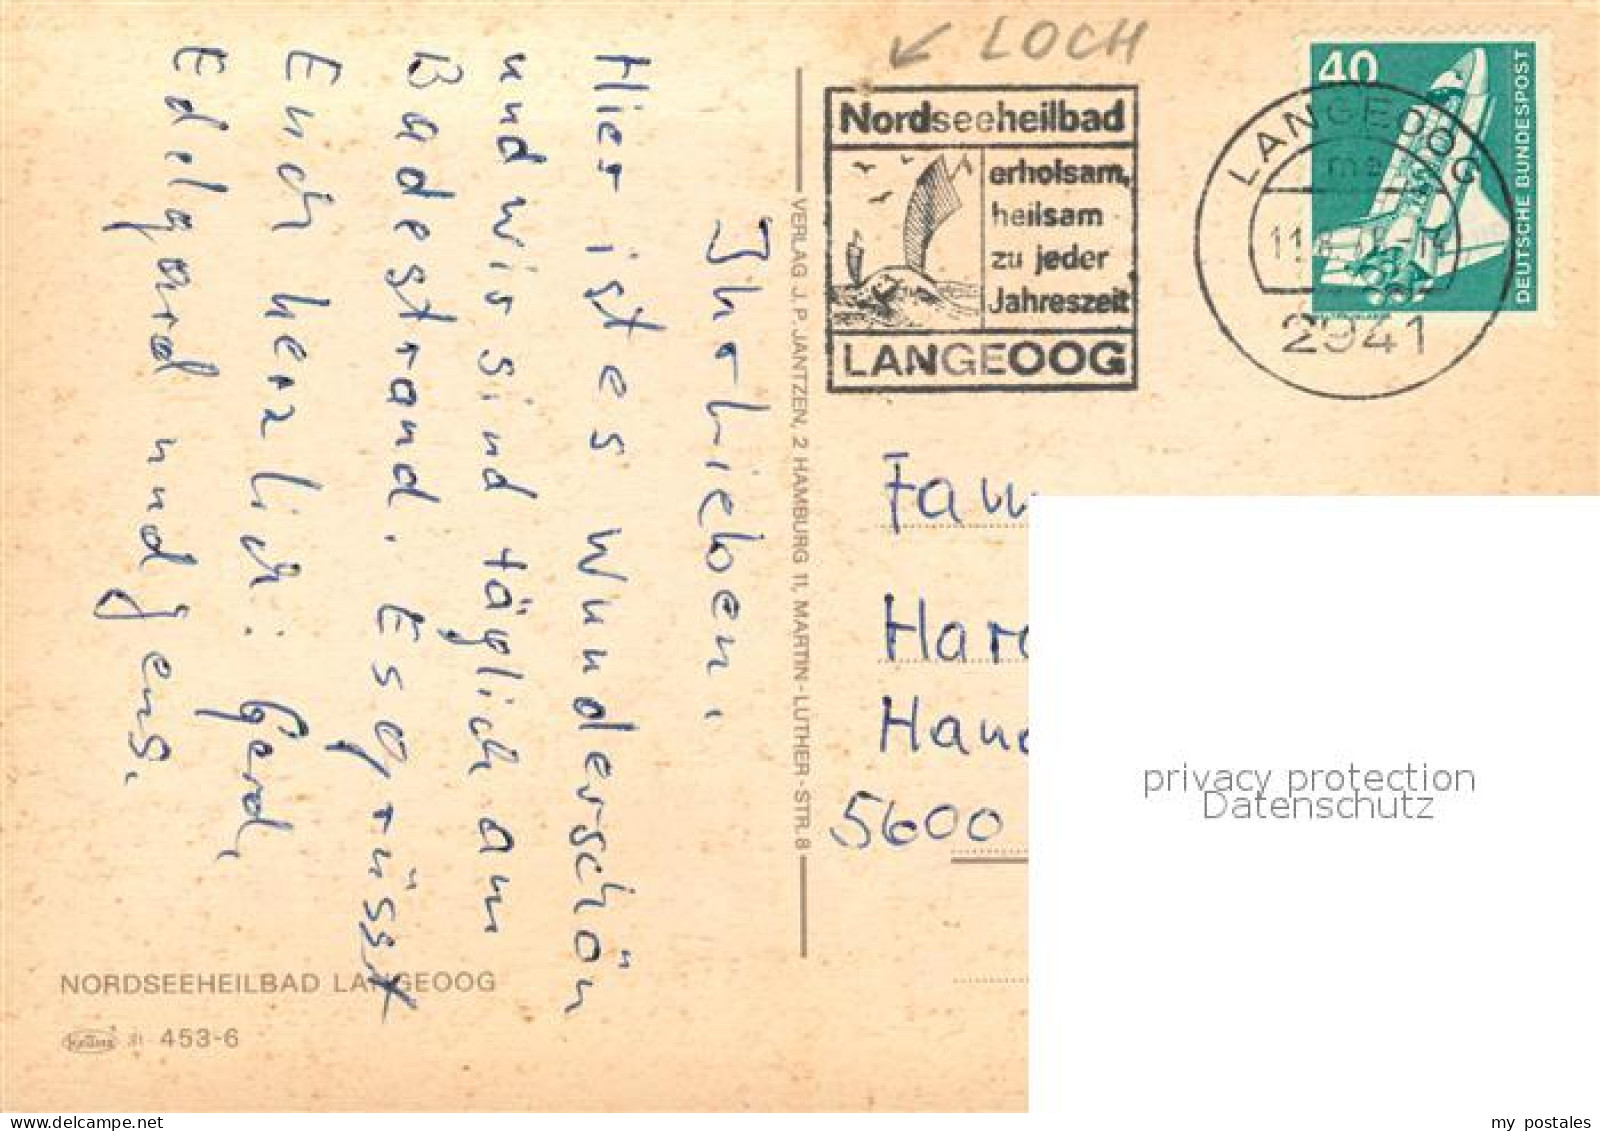 Ihr Lieben,
Hier ist es wunderschön
und wir sind täglich am
Badestrand. Es grüsst
Euch herzlich: Gerd,
Edelgard und Jens.
VERLAG J. P. JANTZEN, 2 HAMBURG 11, MARTIN-LUTHER-STR. 8
NORDSEEHEILBAD LANGEOOG
Krüger 453-6
LOCH
Nordseeheilbad
erholsam,
heilsam
zu jeder
Jahreszeit
LANGEOOG
LANGEOOG
ma
2941
40
DEUTSCHE BUNDESPOST
Fam
Har
Han
5600
privacy protection
Datenschutz
my postales
www.delcampe.net/fluoznat